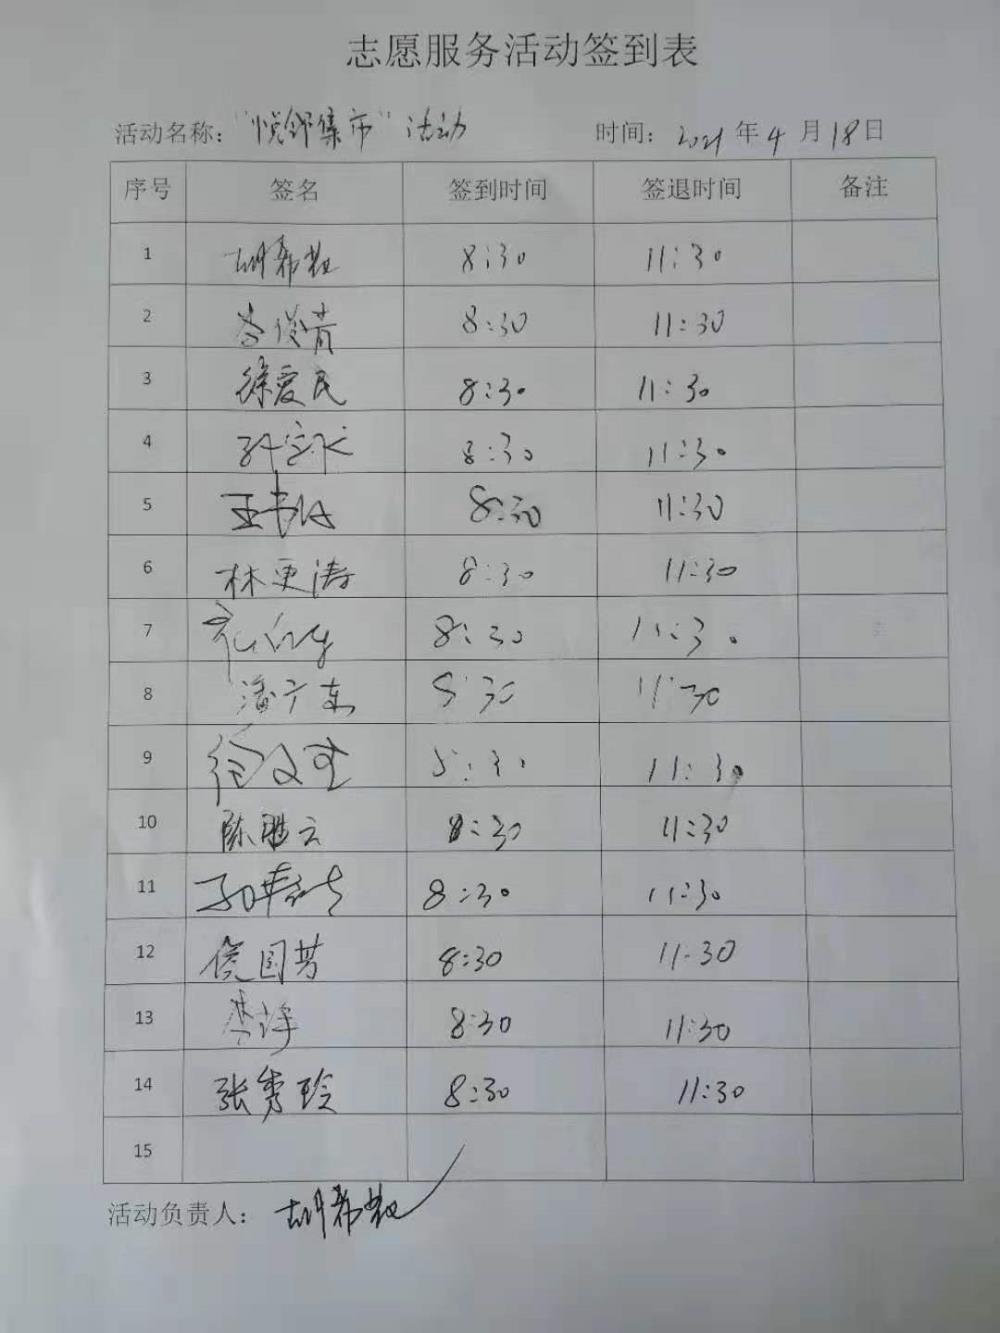 志愿服务活动签到表
活动名称："悦邻集市"活动 时间：2021年4月18日
序号 签名 签到时间 签退时间 备注
1 胡希 8:30 11:30
2 俊青 8:30 11:30
3 徐爱民 8:30 11:30
4 孙 8:30 11:30
5 王 8:30 11:30
6 林更涛 8:30 11:30
7 8:30 11:30
8 潘广东 8:30 11:30
9 徐文 8:30 11:30
10 陈胜云 8:30 11:30
11 孙 8:30 11:30
12 侯国芳 8:30 11:30
13 李 8:30 11:30
14 张秀玲 8:30 11:30
15
活动负责人：胡希